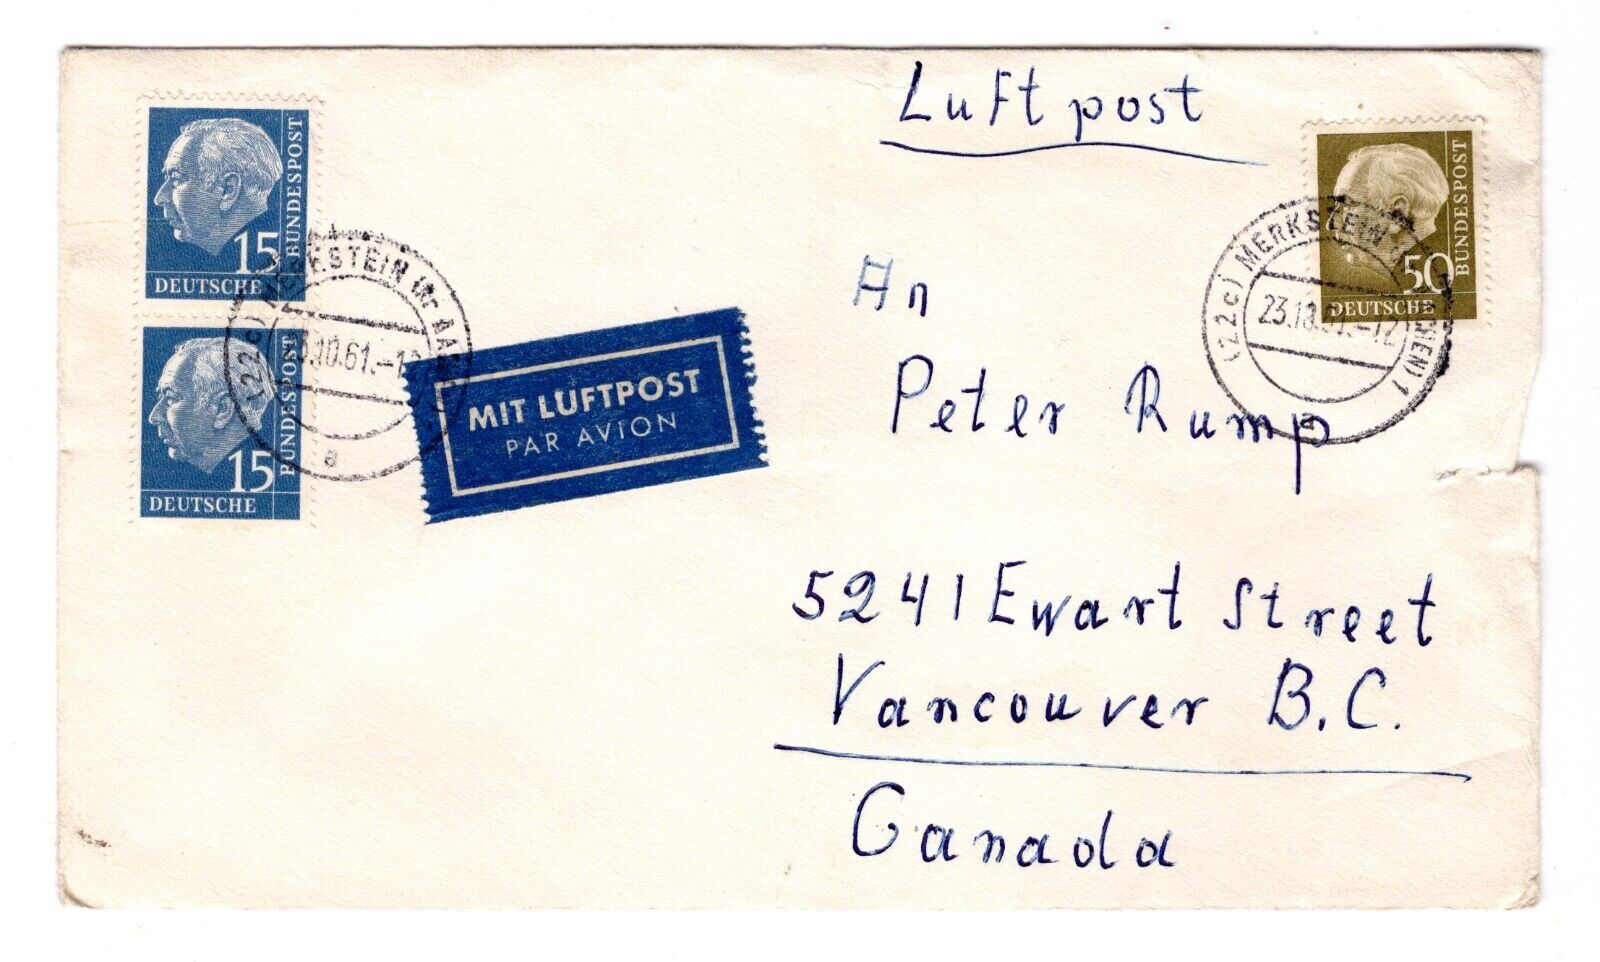 Luftpost
15
DEUTSCHE
BUNDESPOST
15
DEUTSCHE
BUNDESPOST
50
DEUTSCHE
BUNDESPOST
(22c) MERKSTEIN
.10.61.-1
a
(22c) MERKSTEIN
23.10.61.-12
MIT LUFTPOST
PAR AVION
An
Peter Rump
5241 Ewart Street
Vancouver B.C.
Canada